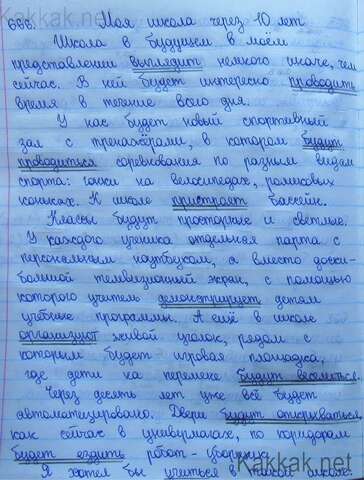 Kakkak.net
686. Моя школа через 10 лет
Школа в будущем в моём
представлении выглядит немного иначе, чем
сейчас. В ней будет интересно проводить
время в течение всего дня.
У нас будет новый спортивный
зал с тренажёрами, в котором будут
проводиться соревнования по разным видам
спорта: гонки на велосипедах, роликовых
коньках. К школе пристраят бассейн.
Классы будут просторные и светлые.
У каждого ученика отдельная парта с
персональным ноутбуком, а вместо доски-
большой телевизионный экран, с помощью
которого учитель демонстрирует детям
учебные программы. А ещё в школе
организуют живой уголок, рядом с
которым будет игровая площадка,
где дети на перемене будут веселиться.
Через десять лет уже всё будет
автоматизировано. Двери будут открываться,
как сейчас в универмагах, по коридорам
будет ездить робот-уборщик.
Я хотел бы учиться в такой школе.
Kakkak.net